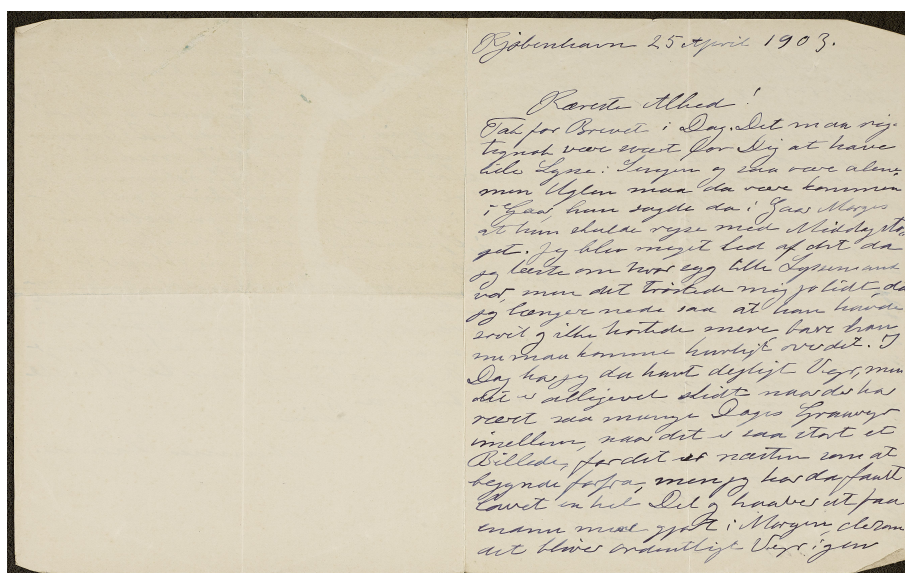 Kjøbenhavn 25 April 1903.
Kæreste Alhed!
Tak for Brevet i Dag. Det maa rig-
tignok være svært for Dig at have
lille Lysse i Sengen og saa være alene
men Uglen maa da være kommen
i Gaar, hun sagde da i Gaar Morges
at hun skulde rejse med Middagsto-
get. Jeg blev meget ked af det da
jeg læste om hvor syg lille Lyssemand
var, men det trøstede mig jo lidt, da
jeg længer nede saa at han havde
sovet og ikke hostede mere bare han
nu maa komme hurtigt over det. I
Dag har jeg da havt dejligt Vejr, men
det er alligevel skidt naar der har
været saa mange Dages Graavejr
imellem, naar det er saa stort et
Billede, for det er næsten som at
begynde forfra, men jeg har da faaet
lavet en hel Del og haaber at faa
endnu mere gjort i Morgen, dersom
det bliver ordentligt Vejr igen